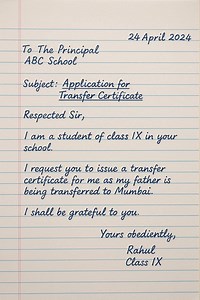 24 April 2024
To The Principal
ABC School
Subject: Application for
Transfer Certificate
Respected Sir,
I am a student of class IX in your
school.
I request you to issue a transfer
certificate for me as my father is
being transferred to Mumbai.
I shall be grateful to you.
Yours obediently,
Rahul
Class IX